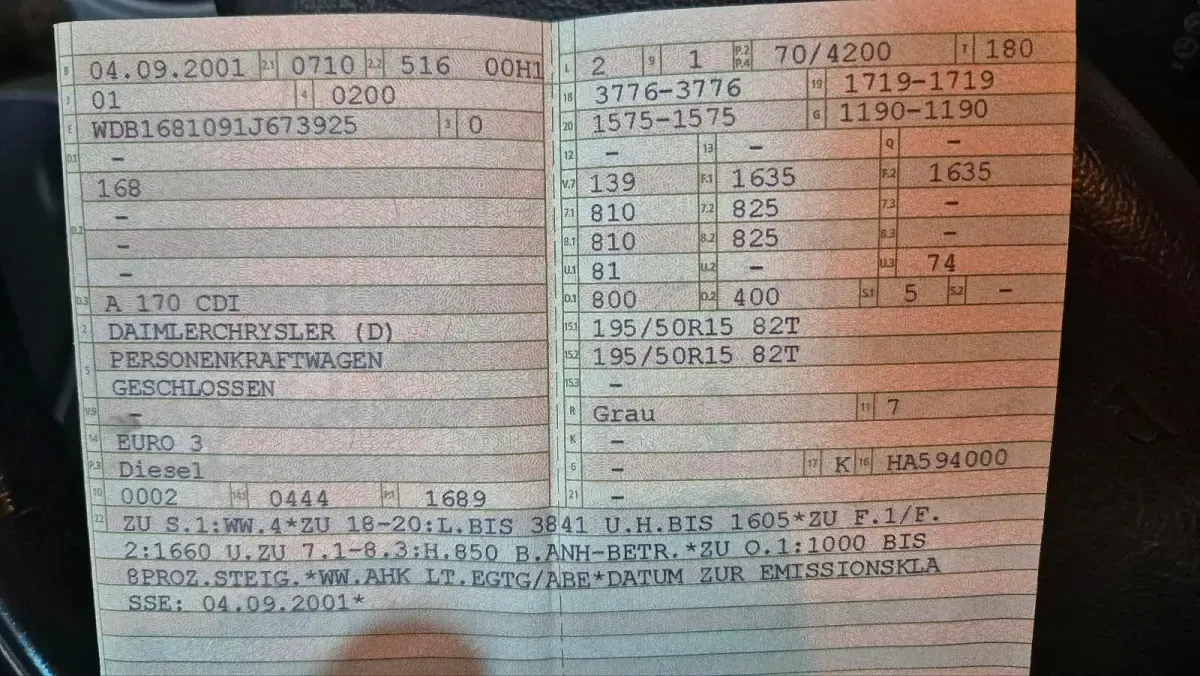 B 04.09.2001 2.1 0710 2.2 516 00H1
J 01 4 0200
E WDB1681091J673925 3 0
D.1 –
168
D.2 –
–
–
D.3 A 170 CDI
2 DAIMLERCHRYSLER (D)
5 PERSONENKRAFTWAGEN
GESCHLOSSEN
V.9 –
14 EURO 3
P.3 Diesel
10 0002 14.1 0444 P.1 1689
L 2 9 1 P.2 P.4 70/4200 T 180
18 3776–3776 19 1719–1719
20 1575–1575 G 1190–1190
12 – 13 – Q –
V.7 139 F.1 1635 F.2 1635
7.1 810 7.2 825 7.3 –
8.1 810 8.2 825 8.3 –
U.1 81 U.2 – U.3 74
O.1 800 O.2 400 S.1 5 S.2 –
15.1 195/50R15 82T
15.2 195/50R15 82T
15.3 –
R Grau 11 7
K –
6 – 17 K 16 HA594000
21 –
22 ZU S.1:WW.4*ZU 18–20:L.BIS 3841 U.H.BIS 1605*ZU F.1/F.
2:1660 U.ZU 7.1–8.3:H.850 B.ANH–BETR.*ZU O.1:1000 BIS
8PROZ.STEIG.*WW.AHK LT.EGTG/ABE*DATUM ZUR EMISSIONSKLA
SSE: 04.09.2001*